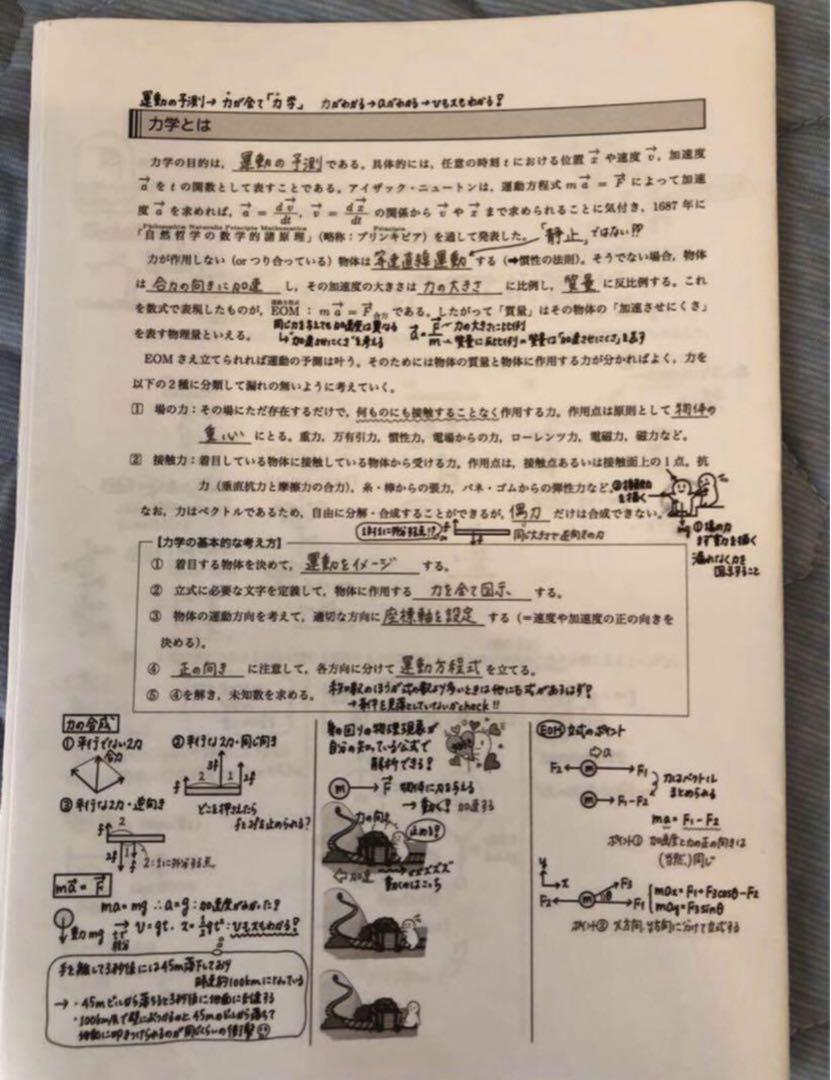 運動の予測→力が全て「力学」 力がわかる→aがわかる→vもxもわかる?
力学とは
力学の目的は，運動の予測である．具体的には，任意の時刻tにおける位置x→や速度v→，加速度
a→をtの関数として表すことである．アイザック・ニュートンは，運動方程式ma→＝F→によって加速
度a→を求めれば，a→＝dv→/dt，v→＝dx→/dtの関係からv→やx→まで求められることに気付き，1687年に
Philosophiae Naturalis Principia Mathematica Principia
「自然哲学の数学的諸原理」（略称：プリンキピア）を通して発表した．「静止」ではない!?
力が作用しない（orつり合っている）物体は等速直線運動する（➡慣性の法則）．そうでない場合，物体
は合力の向きに加速し，その加速度の大きさは力の大きさに比例し，質量に反比例する．これ
運動方程式
を数式で表現したものが，EOM：ma→＝F→合力である．したがって「質量」はその物体の「加速させにくさ」
を表す物理量といえる．
同じ力を与えても加速度は異なる
↳"加速させにくさ"を考える
a→＝F→/m
力の大きさに比例
質量に反比例⇒質量は"加速させにくさ"を表す
EOMさえ立てられれば運動の予測は叶う．そのためには物体の質量と物体に作用する力が分かればよく，力を
以下の2種に分類して漏れの無いように考えていく．
① 場の力：その場にただ存在するだけで，何ものにも接触することなく作用する力．作用点は原則として物体の
重心にとる．重力，万有引力，慣性力，電場からの力，ローレンツ力，電磁力，磁力など．
② 接触力：着目している物体に接触している物体から受ける力．作用点は，接触点あるいは接触面上の1点．抗
力（垂直抗力と摩擦力の合力），糸・棒からの張力，バネ・ゴムからの弾性力など．
②接触力
を描く
なお，力はベクトルであるため，自由に分解・合成することができるが，偶力だけは合成できない．
同じ大きさで逆向きの力
①場の力
まず重力を描く
漏れなく力を
図示すること
［力学の基本的な考え方］
① 着目する物体を決めて，運動をイメージする．
② 立式に必要な文字を定義して，物体に作用する力を全て図示する．
③ 物体の運動方向を考えて，適切な方向に座標軸を設定する（＝速度や加速度の正の向きを
決める）．
④ 正の向きに注意して，各方向に分けて運動方程式を立てる．
⑤ ④を解き，未知数を求める．
文字の数のほうが式の数より多いときは他にも式があるはず?
→条件を見落としていないかcheck!!
力の合成
①平行でない2力
合力
②平行な2力・同じ向き
3f
2 1
f 2f
どこを押さえたら
fと2fを止められる?
③平行な2力・逆向き
2
f
2:1に外分する点
ma→＝F→
ma＝mg ∴a＝g：加速度がわかった?
重力mg
tで積分
v＝gt，x＝1/2gt²：vもxもわかる?
手を離して3秒後には45m落下しており
時速約100kmになっている
→・45mビルから落ちると3秒後に地面に到達する
・100km/hで壁にぶつかるのと45mのビルから落ちて
地面に叩きつけられるのが同じくらいの衝撃
身の回りの物理現象が
自分の知っている公式で
解析できる?
m→F→ 物体に力を与える
→動く? 加速する
力の向き
止める?
加速
ズズズズ
動くのはこっち
EOM 立式のポイント
a
F2←m→F1
力はベクトル
まとめられる
m→F1－F2
ma＝F1－F2
ポイント① 加速度と力の正の向きは
(当然)同じ
y
x
F2←m→F1
θ F3
max＝F1＋F3cosθ－F2
may＝F3sinθ
ポイント② x方向，y方向に分けて立式する